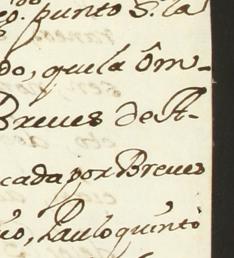 eo. punto S. la
do, que la Om-
Breves de A-
cada por Breves
uo, Paulo quinto